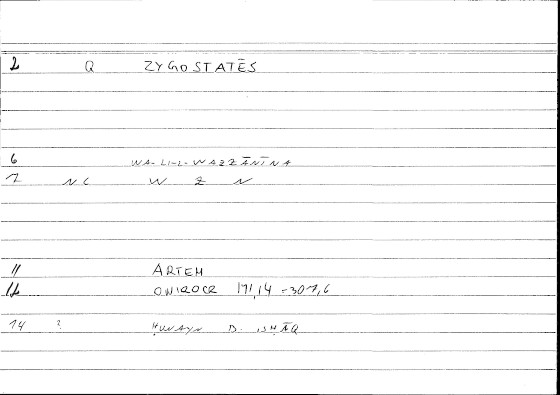 2 Q ZYGOSTATĒS
6 WA-LI-L-WAZZĀNĪNA
7 NC W Z N
11 ARTEM
12 ONIROCR 171,14 = 307,6
14 ? ḤUNAYN B. ISḤĀQ